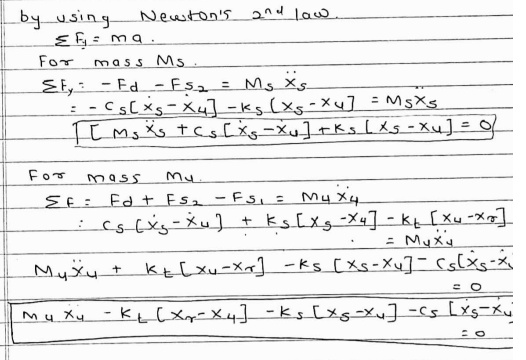 by using Newton's 2nd law.
ΣFy = ma.
For mass Ms.
ΣFy = -Fd - Fs2 = Ms ẍs
= -Cs[ẋs - ẋu] - Ks[xs - xu] = Ms ẍs
[Ms ẍs + Cs[ẋs - ẋu] + Ks[xs - xu] = 0
For mass Mu.
ΣF = Fd + Fs2 - Fs1 = Mu ẍu
: Cs[ẋs - ẋu] + Ks[xs - xu] - Kt[xu - xr]
= Mu ẍu
Mu ẍu + Kt[xu - xr] - Ks[xs - xu] - Cs[ẋs - ẋu
= 0
Mu ẍu - Kt[xr - xu] - Ks[xs - xu] - Cs[ẋs - ẋu
= 0